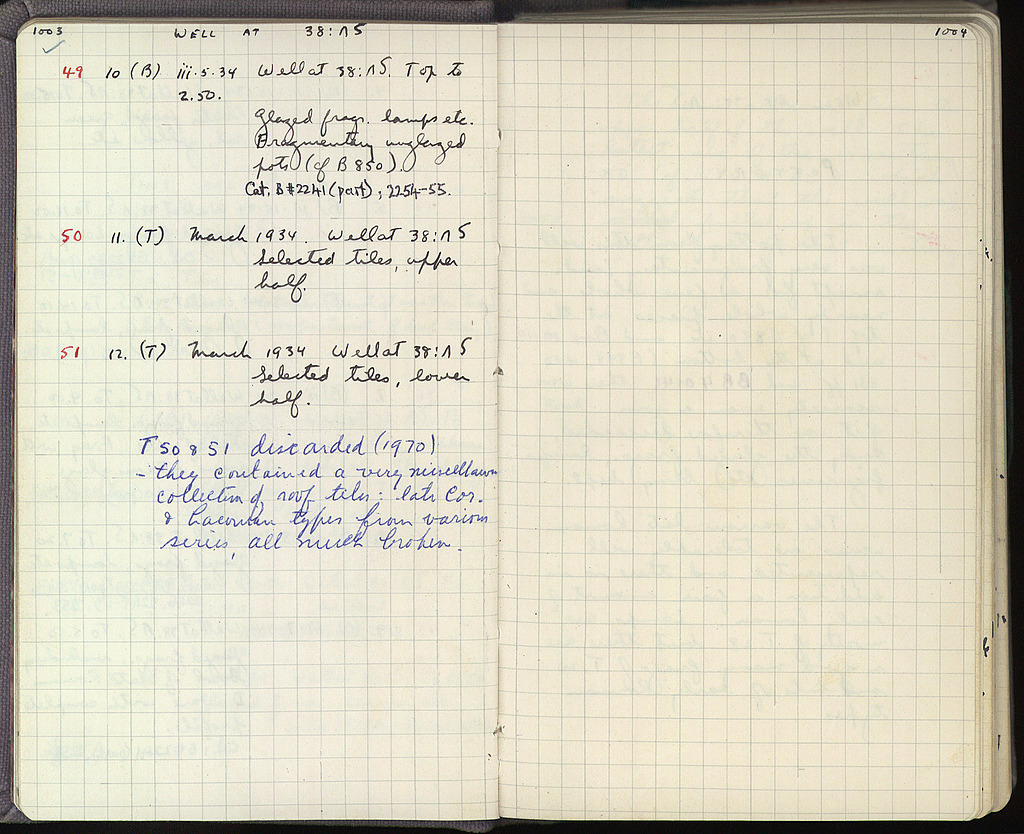 1003
WELL AT 38:ΛΕ
49 10 (B) iii.5.34 Well at 38:ΛΕ. Top to
2.50.
Glazed frags. lamps etc.
Fragmentary unglazed
pots (cf B 850).
Cat. B #2241 (part), 2254-55.
50 11. (T) March 1934. Well at 38:ΛΕ
Selected tiles, upper
half.
51 12. (T) March 1934 Well at 38:ΛΕ
Selected tiles, lower
half.
T 50 & 51 discarded (1970)
- they contained a very miscellaneous
collection of roof tiles: late Cor.
& Laconian types from various
series, all much broken.
1004